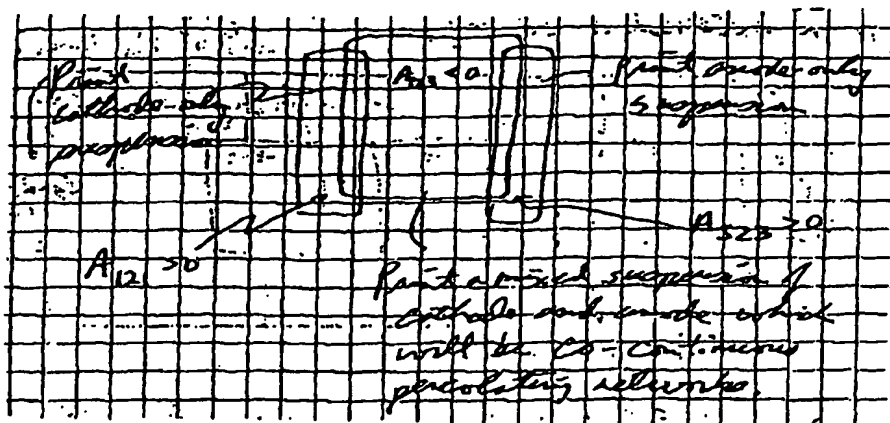 Print
cathode-only
suspension
A₁₂₃ < 0
Print anode-only
suspension
A₁₂₁ > 0
A₃₂₃ > 0
Print a mixed suspension of
cathode and anode which
will be co-continuous
percolating networks.